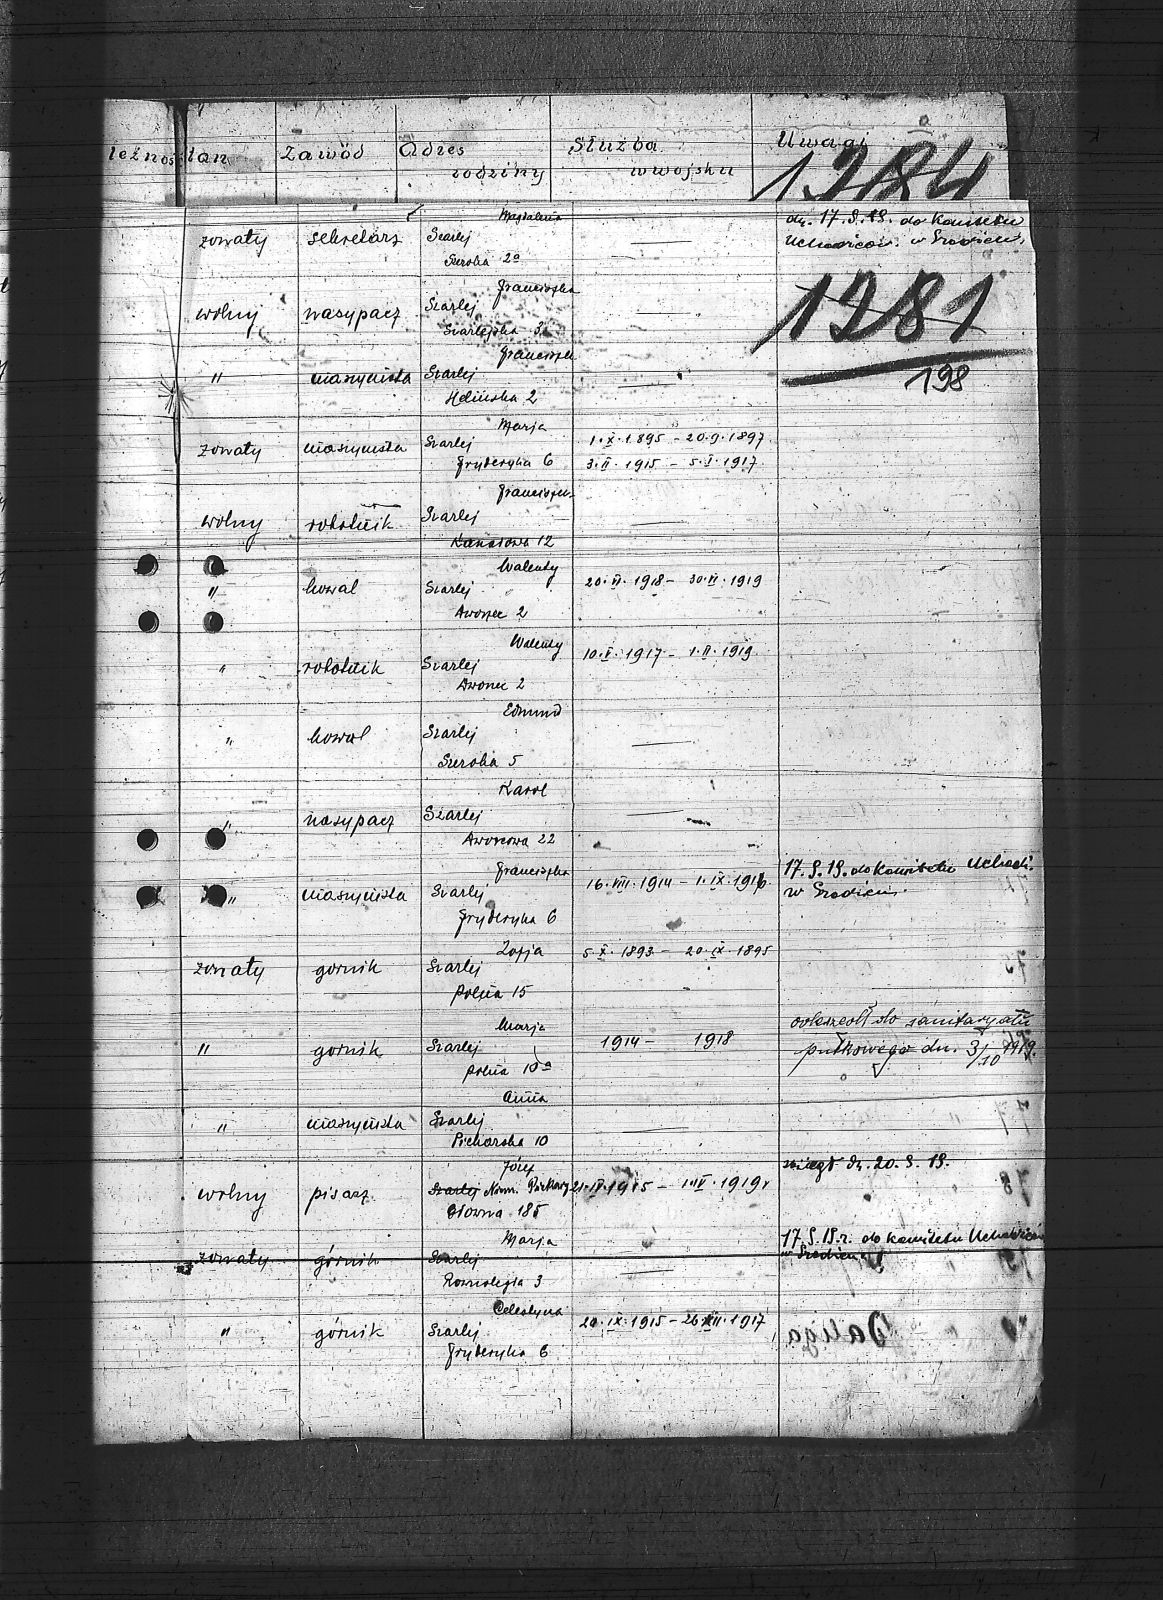 leżność stan Zawód Adres rodziny Służba w wojsku Uwagi
1284
Magdalena
dn. 17.9.19. do Komitetu
żonaty sekretarz Szarlej —
Uchodźców w Grodźcu
Szeroka 2a
Franciszka
1281
wolny nasypacz Szarlej —
Szarlejska 3
Franciszek
198
" maszynista Szarlej —
2
Marja
żonaty maszynista Szarlej 1.X.1895 – 20.9.1897
Fryderyka 6 3.II.1915 – 5.I.1917
Franciszek
wolny robotnik Szarlej —
12
Walenty
" kowal Szarlej 20.VI.1918 – 30.VI.1919
Dworzec 2
Walenty
" robotnik Szarlej 10.V.1917 – 1.II.1919
Dworzec 2
Edmund
" kowal Szarlej —
Szeroka 5
Karol
" nasypacz Szarlej —
Dworcowa 22
Franciszka
17.9.19. do Komitetu Uchodź.
" maszynista Szarlej 16.VIII.1914 – 1.IX.1916
w Grodźcu
Fryderyka 6
Zofja
żonaty gornik Szarlej 5.X.1893 – 20.IX.1895
Polna 15
Marja
odszedł do sanitaryatu
" gornik Szarlej 1914 – 1918
pułkowego dn. 3/10 1919.
Polna 10a
Anna
" maszynista Szarlej —
Piekarska 10
Józef
zbiegł dn. 20.9.19.
wolny pisarz Szarlej Niem. Piekary 21.IV.1915 – 1.VI.1919
Główna 185
Marja
17.9.19.r. do komitetu Uchodźców
żonaty górnik Szarlej —
w Grodźcu
3
Celestyna
" górnik Szarlej 20.IX.1915 – 26.XII.1917
Fryderyka 6